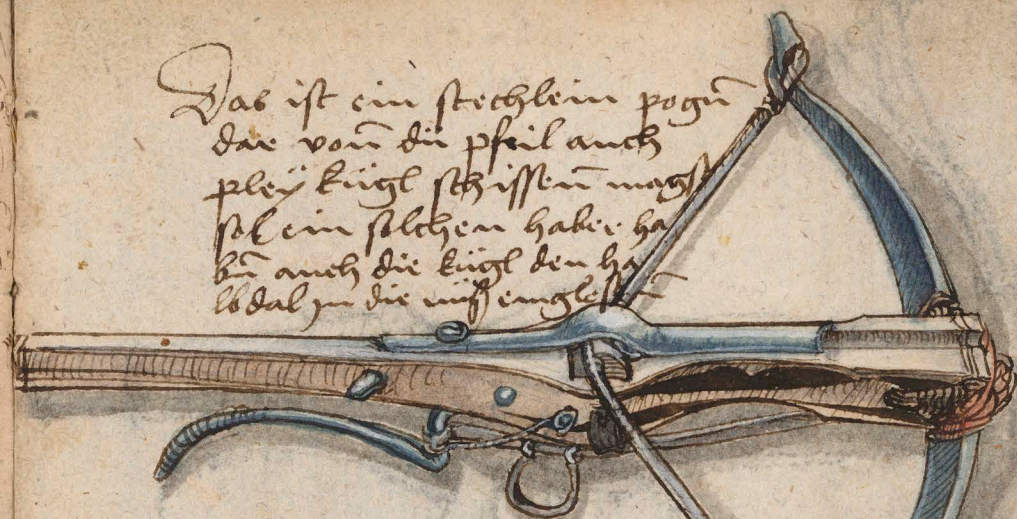 Das ist ein stechlein pogn̄
dar von̄ du pfeil auch
pleÿ kügl schissen̄ magst
sol ein solchen haber ha
bn̄ auch die kügl den ha
lb dal in die nüß